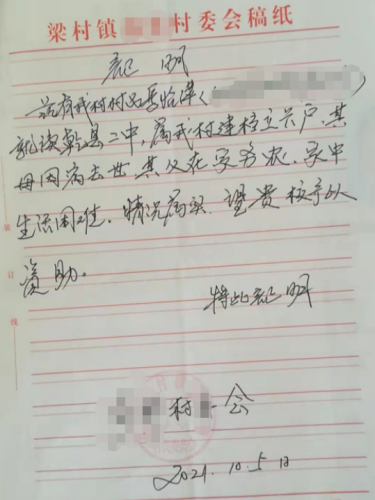 梁村镇 村委会稿纸
证明
兹有我村村民 怡泽(
就读乾县二中,属我村建档立卡户,其
母因病去世,其父在家务农,家中
生活困难,情况属实,望贵校予以
资助。
特此证明
村 会
2021.10.5日
装
订
线